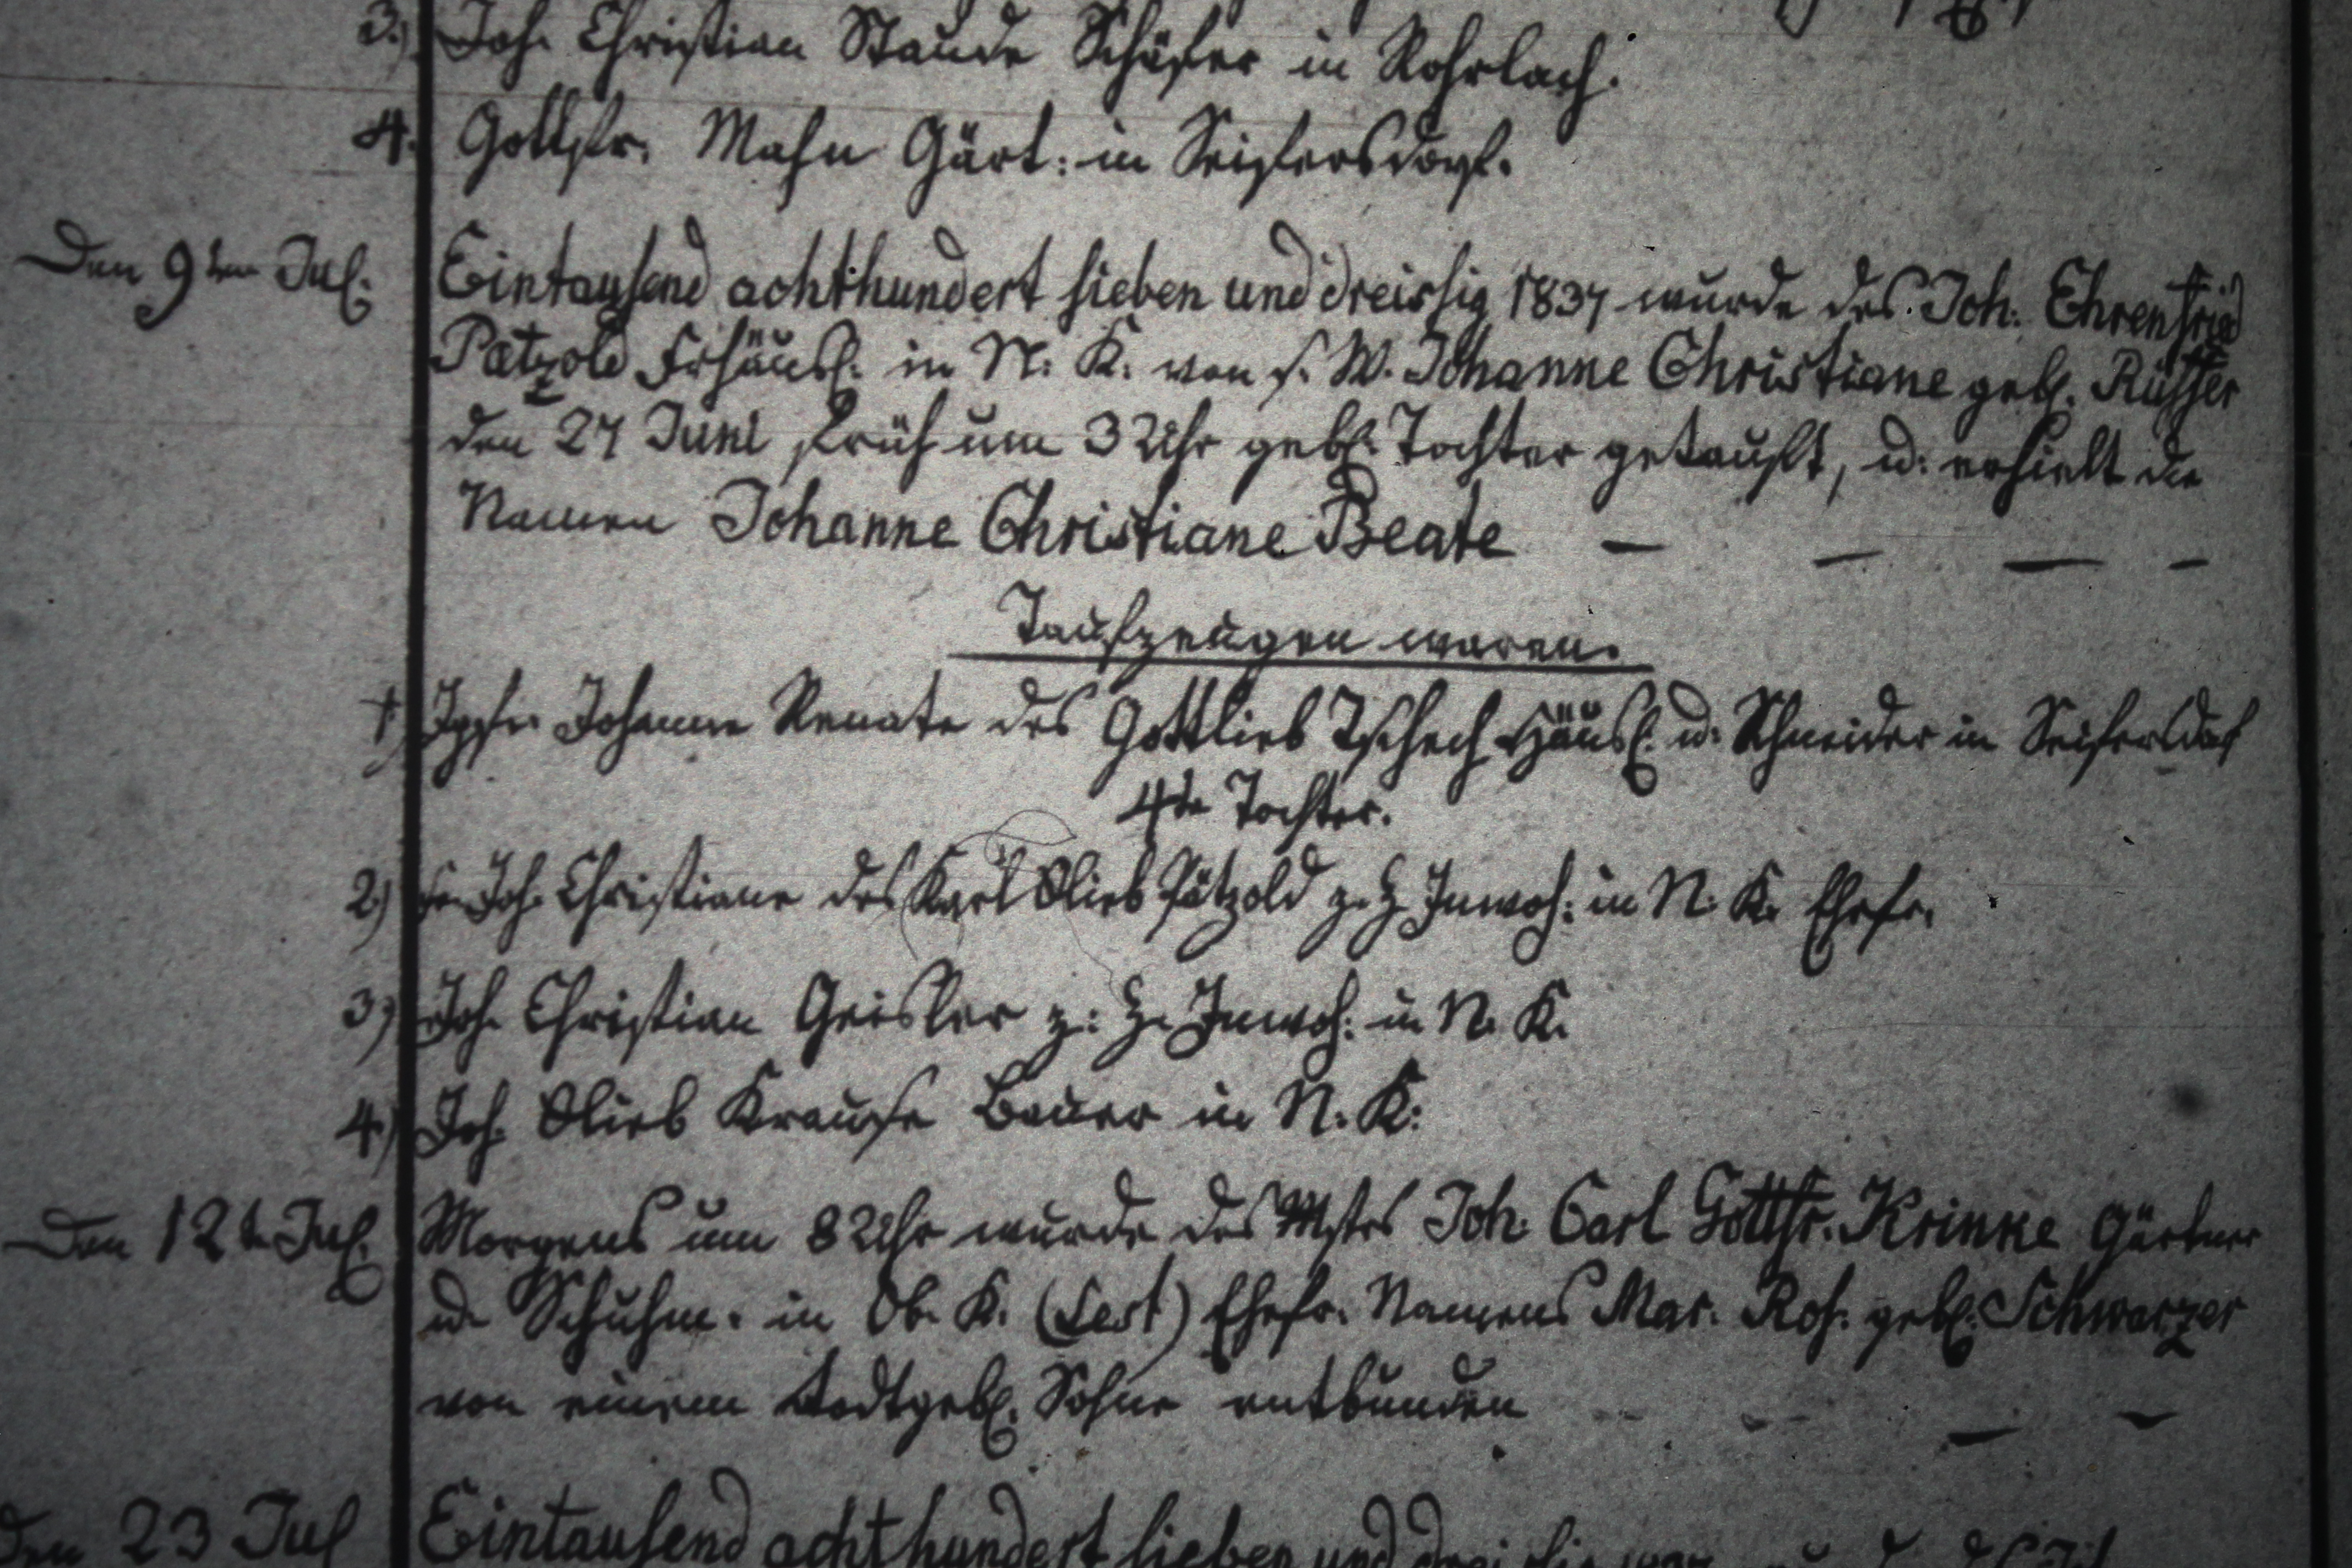 3.) Joh. Christian Staude Schäfer in Rohrlach.
4. Gottfr. Mahn Gärt: in Seifersdorf.
Den 9ten Jul. Eintausend achthundert sieben und dreissig 1837 wurde des Joh. Ehrenfried
Pätzold Frhäusl. in N. K. von s. W. Johanne Christiane geb. Rüffer
den 27 Juni früh um 3 Uhr geb. Tochter getauft, u. erhielt die
Namen Johanne Christiane Beate — — — —
Taufzeugen waren.
1.) Jgfr. Johanne Renate des Gottlieb Tschech Häusl. u. Schneider in Seifersdorf
4te Tochter.
2.) Fr. Joh. Christiane des Karl Glieb Pätzold z. Z. Inwoh: in N. K. Ehefr.
3.) Joh. Christian Geisler z: Z. Inwoh: in N. K.
4.) Joh. Glieb Krause Bauer in N. K:
Den 12t Jul. Morgens um 8 Uhr wurde des Mstrs Joh. Carl Gottfr. Krinke Gärtner
u. Schuhm. in Ob. K. Ehefr. Namens Mar. Ros. geb. Schwarzer
von einem todtgeb. Sohne entbunden — —
Den 23 Jul Eintausend achthundert sieben und